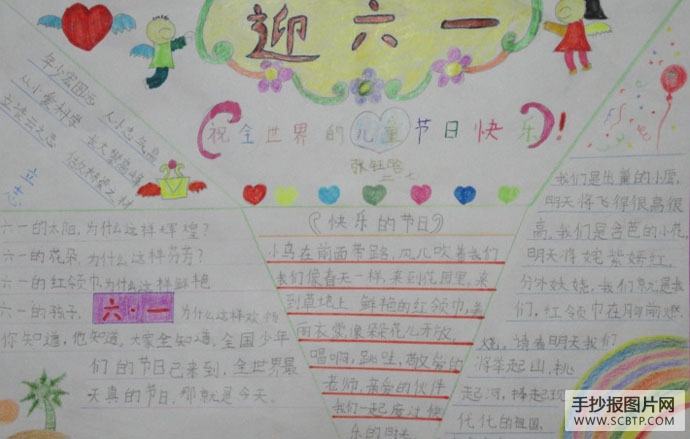 迎六一
祝全世界的儿童节日快乐!
立志
六一的太阳,为什么这样辉煌?
六一的花朵,为什么这样芬芳?
六一的红领巾为什么这样鲜艳
六一的孩子,六·一为什么这样欢
你知道,他知道,大家全知道,全国少年
们的节日已来到,全世界最
天真的节日,那就是今天.
《快乐的节日》
小鸟在前面带路,风儿吹着我们
我们像春天一样,来到花园里,来
到草地上,鲜艳的红领巾,美
丽衣裳像朵朵花儿开放,
唱啊,跳哇,敬爱的
老师,亲爱的伙伴
我们一起度过快
乐的时光
我们是出巢的小鹰,
明天将飞得很高很
高,我们是含苞的小花,
明天将姹紫嫣红,
分外妖娆,我们就是我
们,红领巾在胸前燃
烧,请看明天我们
将举起山,挑
起河,捧起现
代化的祖国.
手抄报图片网
WWW.SCBTP.COM